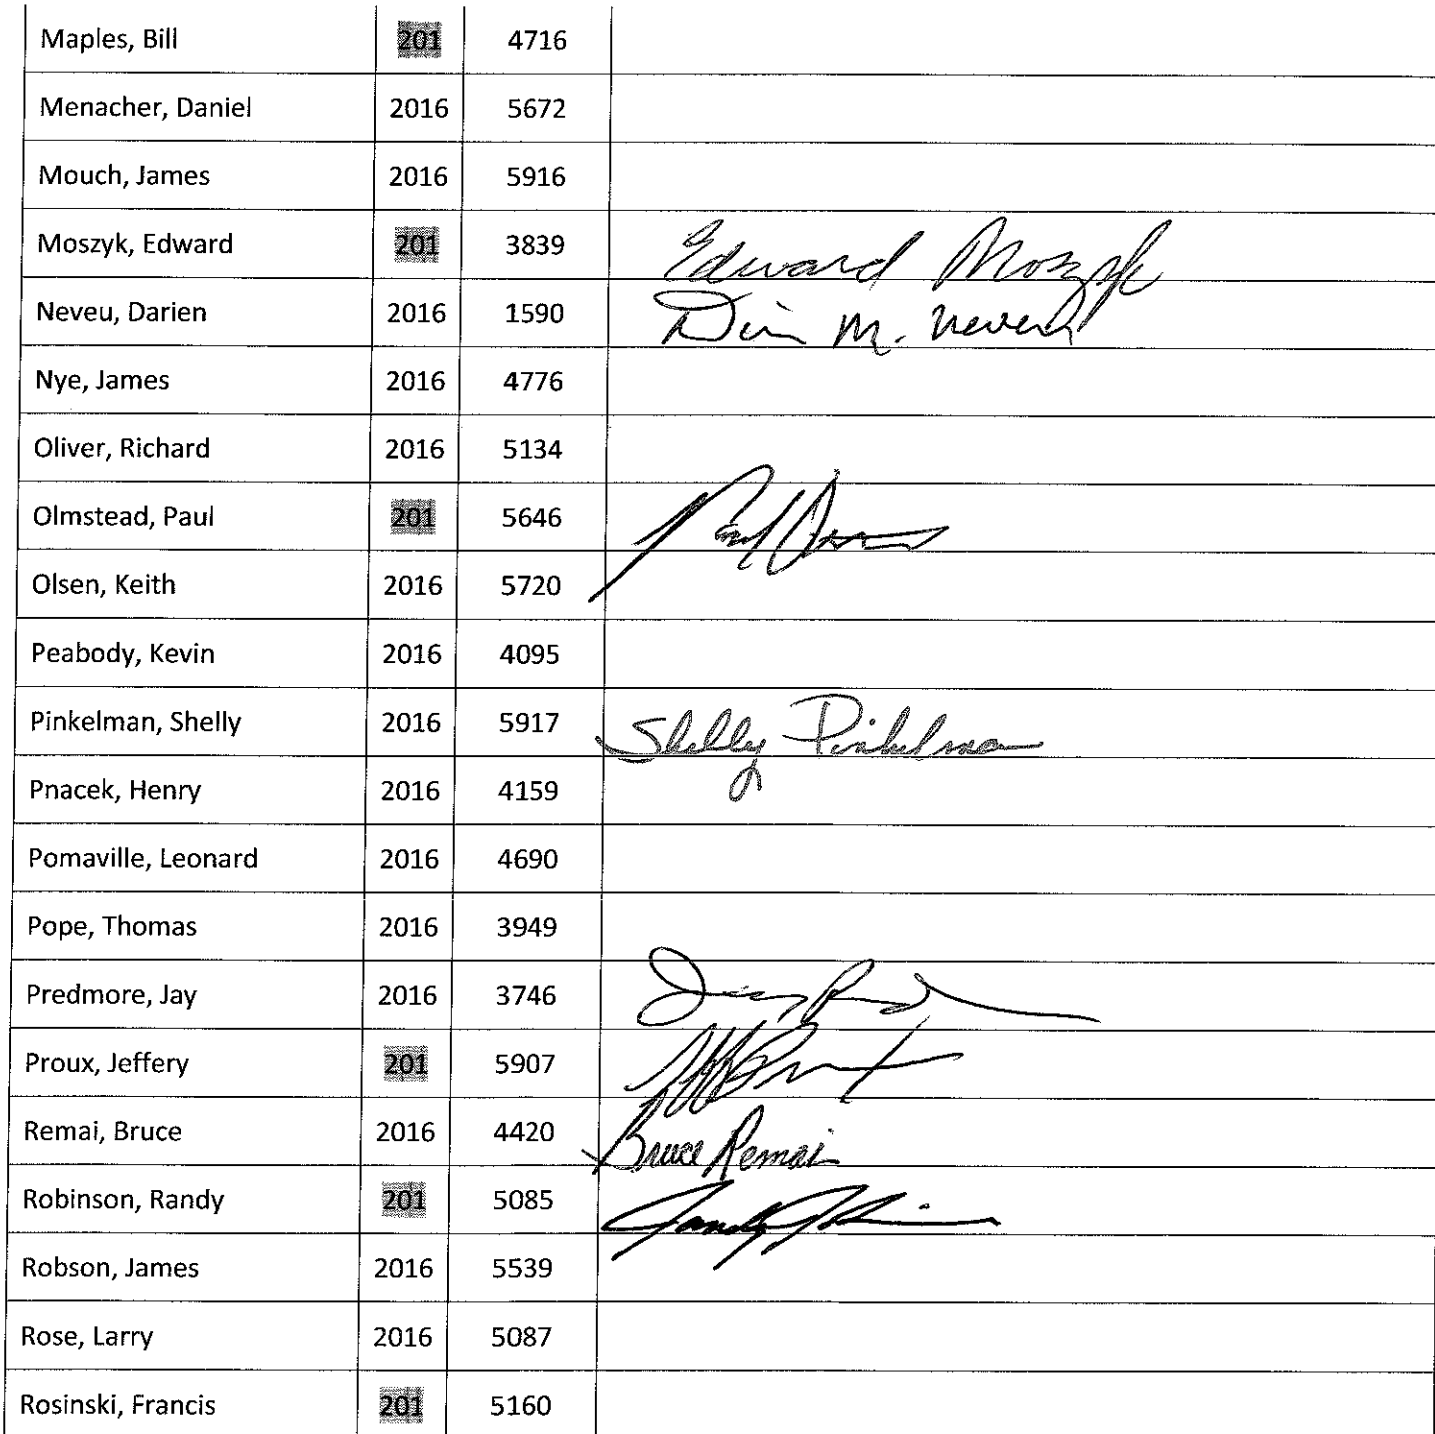 Maples, Bill 201 4716
Menacher, Daniel 2016 5672
Mouch, James 2016 5916
Moszyk, Edward 201 3839 Edward Moszyk
Neveu, Darien 2016 1590 M. Neveu
Nye, James 2016 4776
Oliver, Richard 2016 5134
Olmstead, Paul 201 5646 Paul
Olsen, Keith 2016 5720
Peabody, Kevin 2016 4095
Pinkelman, Shelly 2016 5917 Shelly Pinkelman
Pnacek, Henry 2016 4159
Pomaville, Leonard 2016 4690
Pope, Thomas 2016 3949
Predmore, Jay 2016 3746
Proux, Jeffery 201 5907
Remai, Bruce 2016 4420 Bruce Remai
Robinson, Randy 201 5085
Robson, James 2016 5539
Rose, Larry 2016 5087
Rosinski, Francis 201 5160